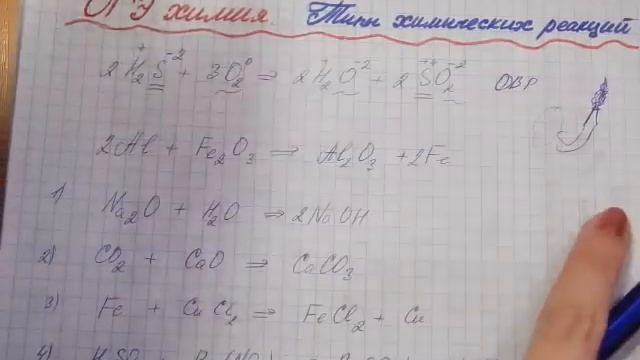 ОГЭ химия. Типы химических реакций
2H₂⁺S⁻² + 3O₂⁰ ⇒ 2H₂⁺O⁻² + 2S⁺⁴O₂⁻² ОВР
2Al + Fe₂O₃ ⇒ Al₂O₃ + 2Fe
1) Na₂O + H₂O ⇒ 2NaOH
2) CO₂ + CaO ⇒ CaCO₃
3) Fe + CuCl₂ ⇒ FeCl₂ + Cu
4)